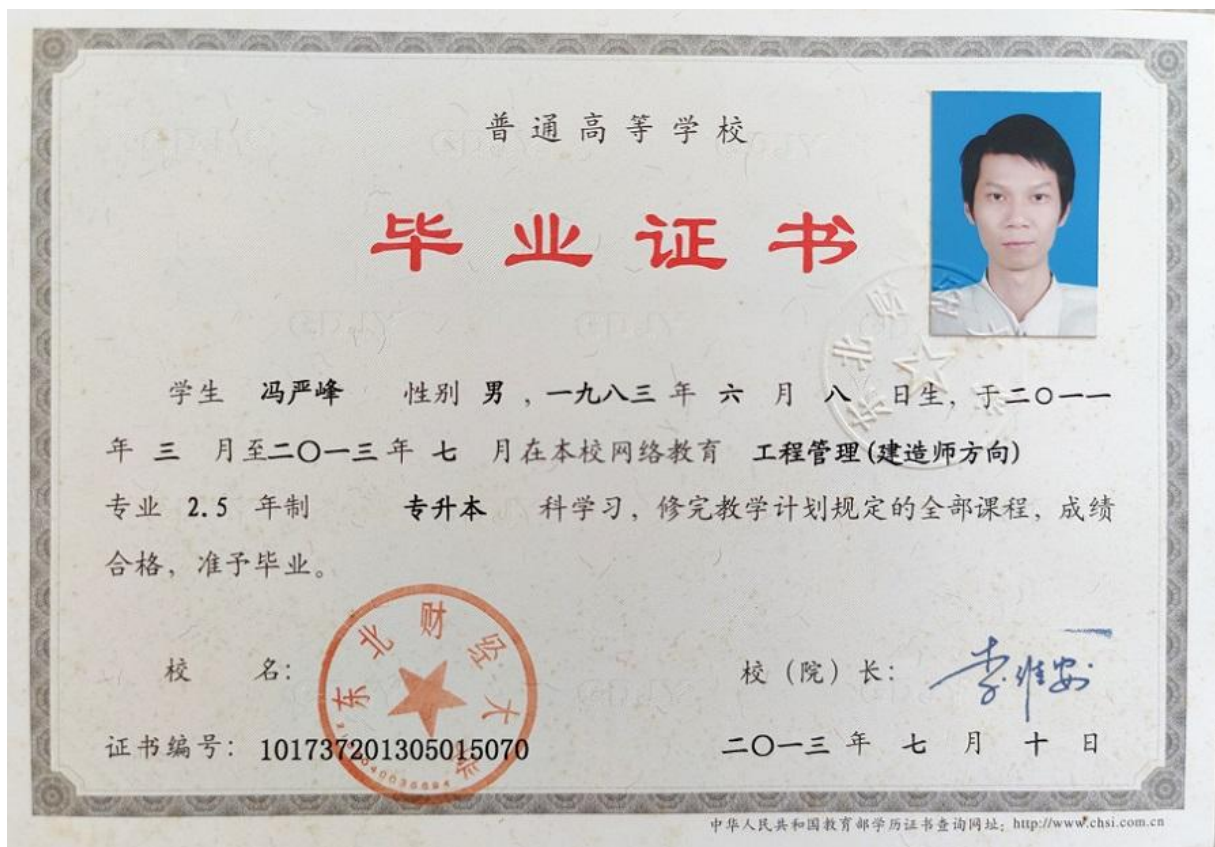 普通高等学校
毕业证书
学生 冯严峰 性别 男 ，一九八三 年 六 月 八 日生，于二〇一一
年 三 月至二〇一三年 七 月在本校网络教育 工程管理(建造师方向)
专业 2.5 年制 专升本 科学习，修完教学计划规定的全部课程，成绩
合格，准予毕业。
东北财经大学
校 名：
校（院）长： 李维安
证书编号： 101737201305015070
二〇一三 年 七 月 十 日
中华人民共和国教育部学历证书查询网址：http://www.chsi.com.cn